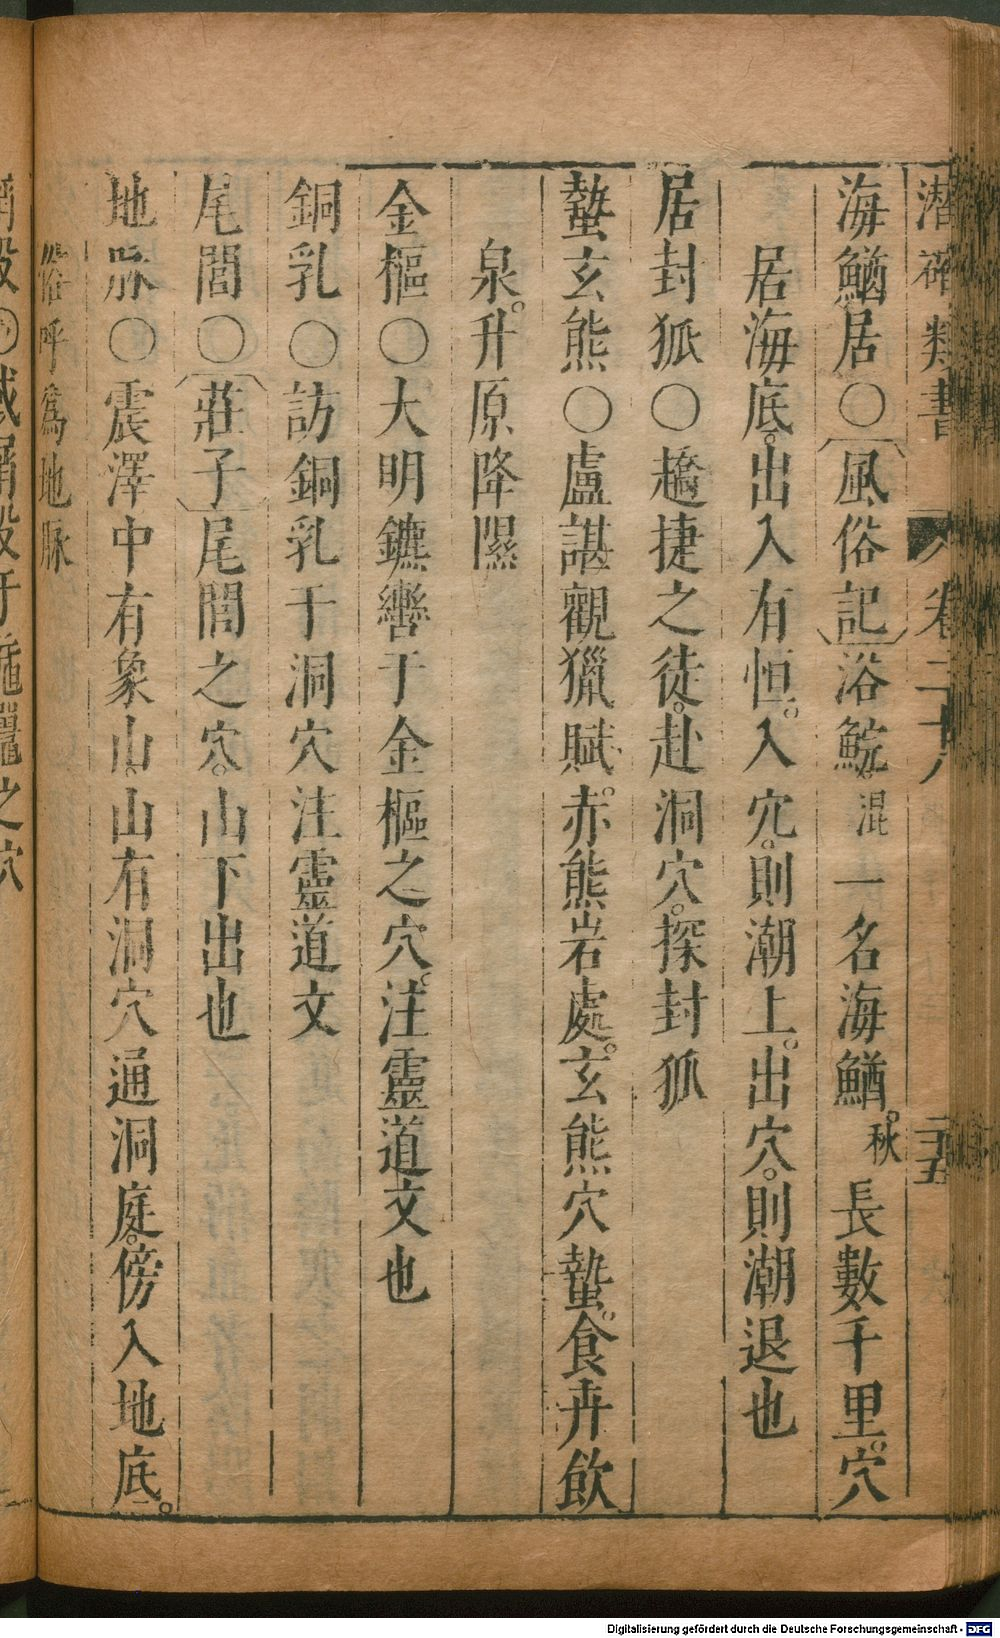 潛確類書 卷二十八 二十五
海鰌居〇〔風俗記〕浴鯇。混一名海鰌。秋長數千里。穴
居海底。出入有恒。入穴。則潮上。出穴。則潮退也
居封狐〇趫捷之徒。赴洞穴。探封狐
蟄玄熊〇盧諶觀獵賦。赤熊岩處。玄熊穴蟄。食卉飲
泉。升原降隰
金樞〇大明鑣轡于金樞之穴。注靈道文也
銅乳〇訪銅乳于洞穴注靈道文
尾閭〇〔莊子〕尾閭之穴。山下出也
地脉〇震澤中有象山。山有洞穴通洞庭。傍入地底。
俗呼爲地脉
之穴
Digitalisierung gefördert durch die Deutsche Forschungsgemeinschaft - DFG